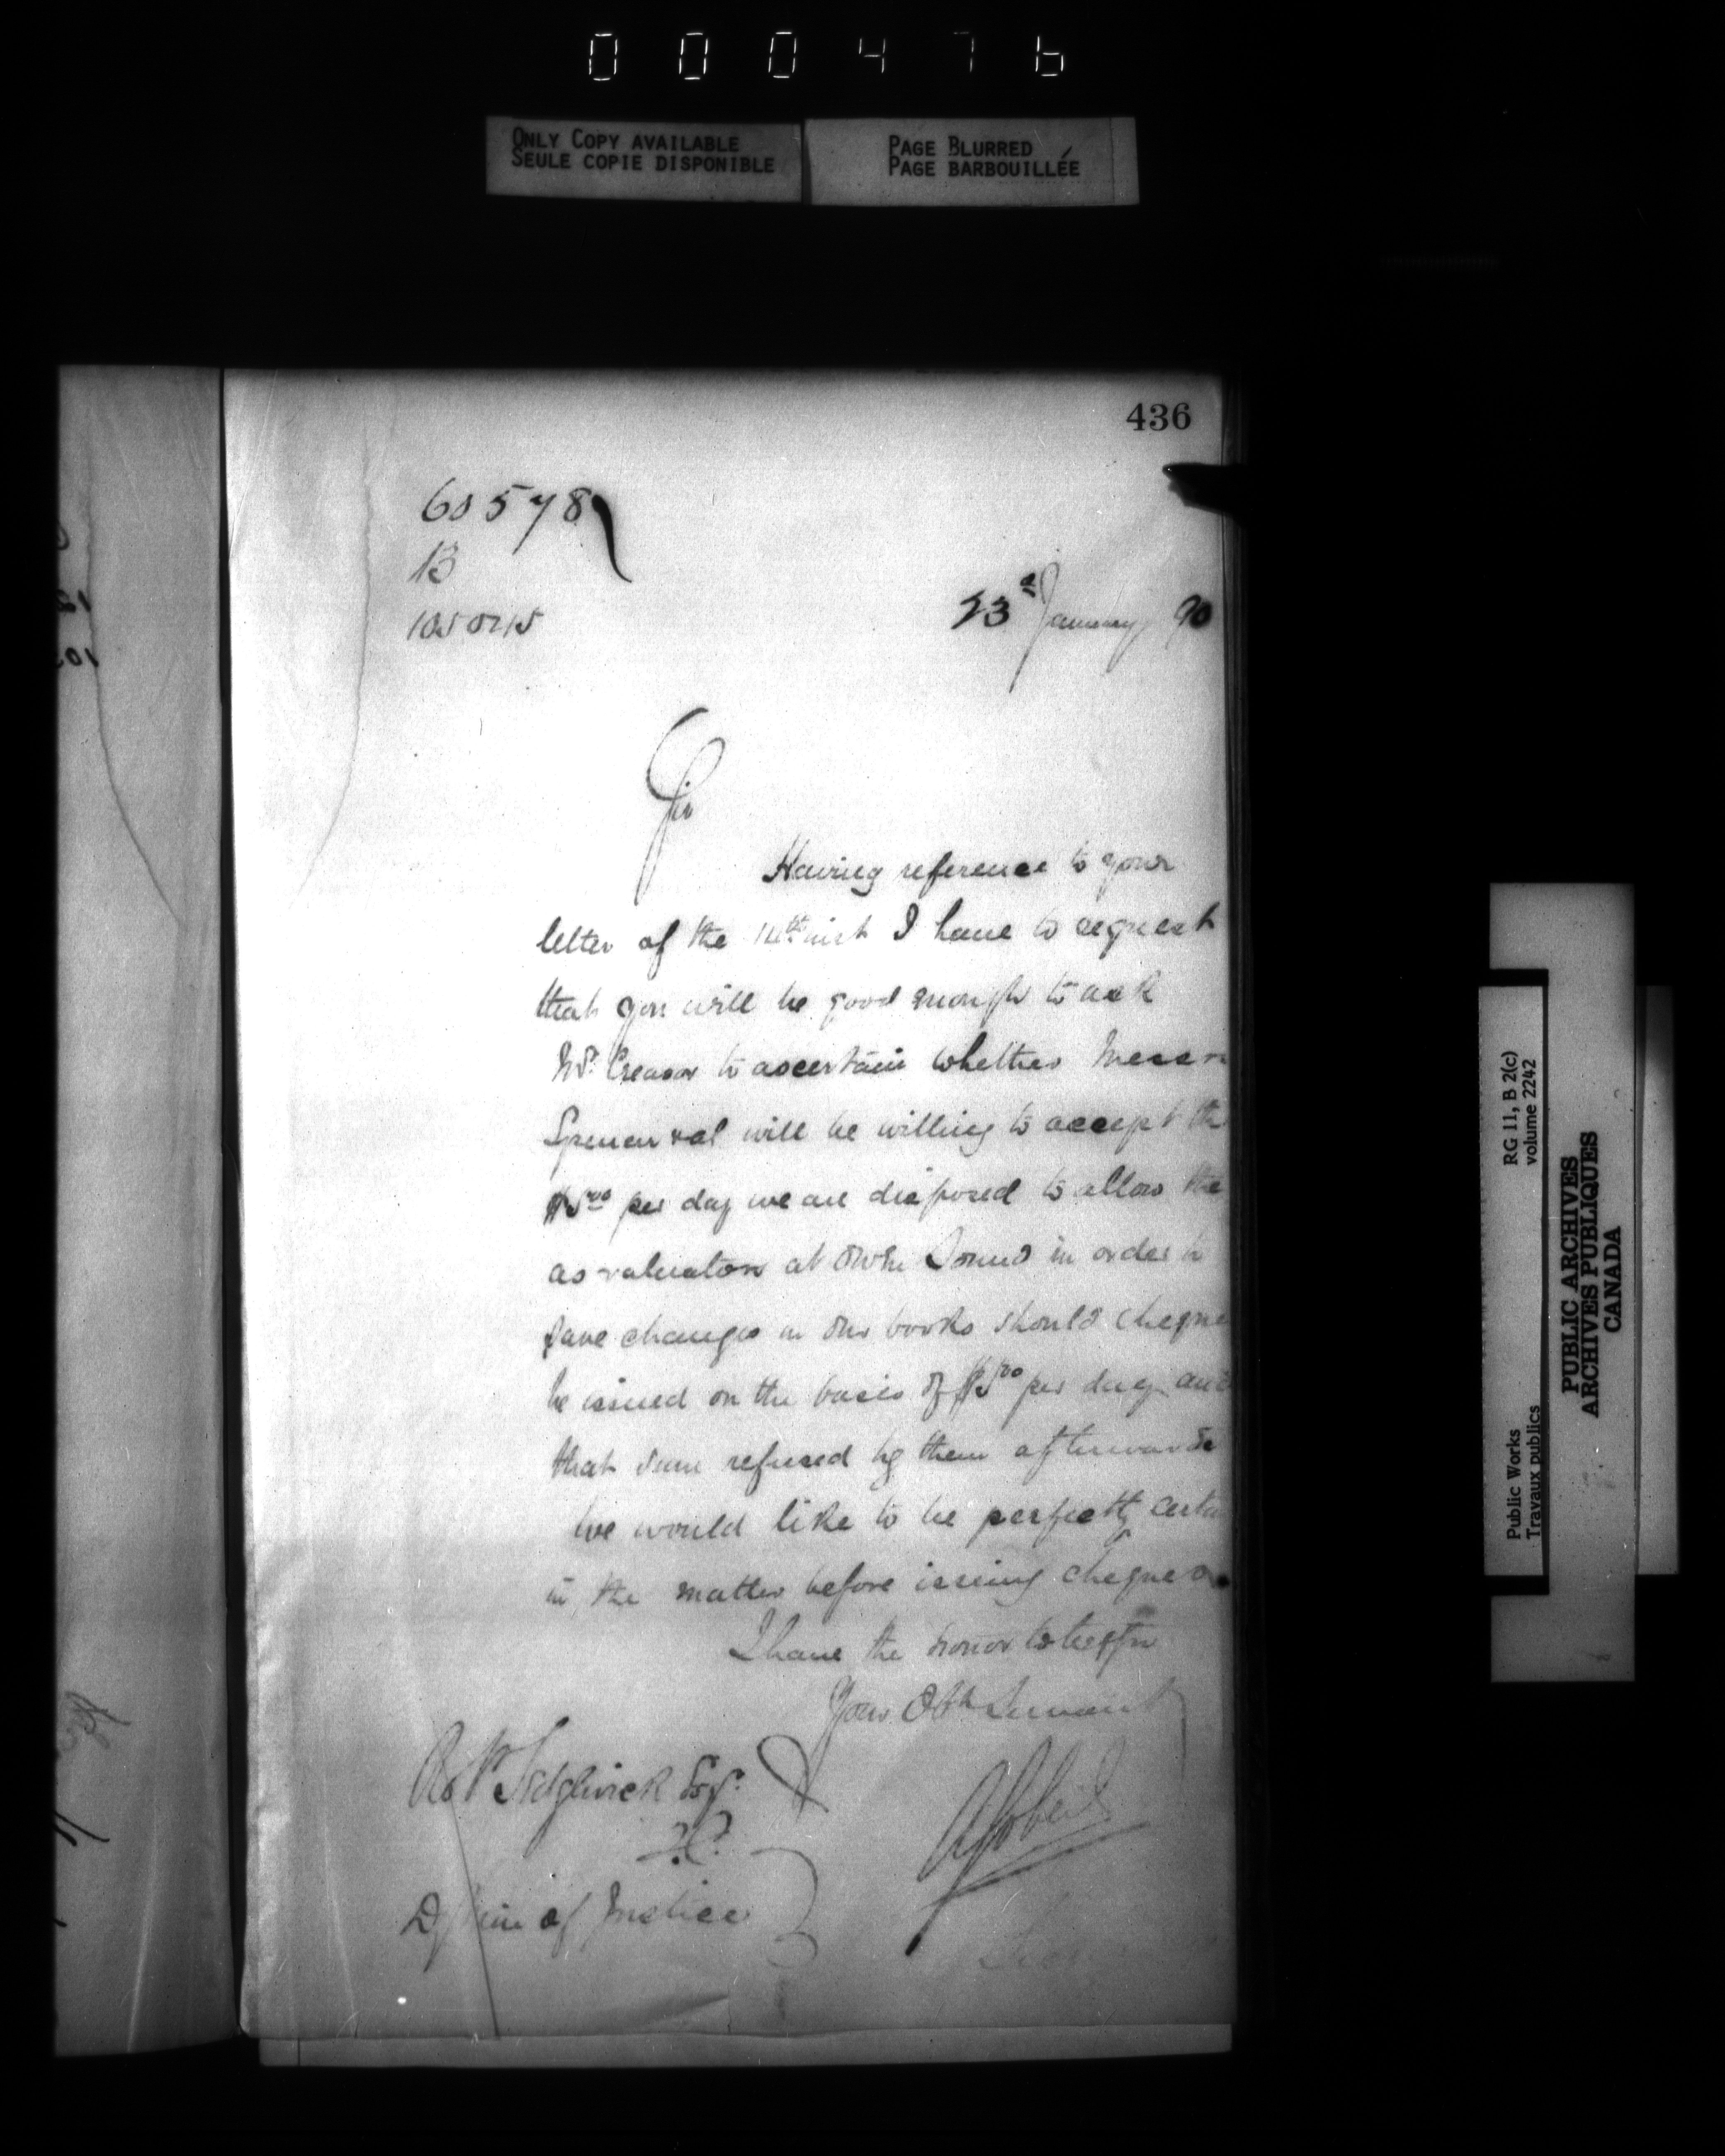 000476
ONLY COPY AVAILABLE
SEULE COPIE DISPONIBLE
PAGE BLURRED
PAGE BARBOUILLÉE
436
60578
13
23d January 90
Sir
Having reference to your
letter of the 14th inst I have to request
that you will be good enough to ask
Mr. Creasor to ascertain whether Messrs
will be willing to accept the
$5.00 per day we are disposed to allow the
as valuators at Owen Sound in order to
save changes in our books should cheques
be issued on the basis of $5.00 per day and
that sum refused by them afterwards
We would like to be perfectly certain
in the matter before issuing cheques.
I have the honor to be Sir
Your Obt Servant
Robt Sedgewick Esq.
Q.C.
Dy Min of Justice
A Gobeil
RG 11, B 2(c)
volume 2242
Public Works
Travaux publics
PUBLIC ARCHIVES
ARCHIVES PUBLIQUES
CANADA